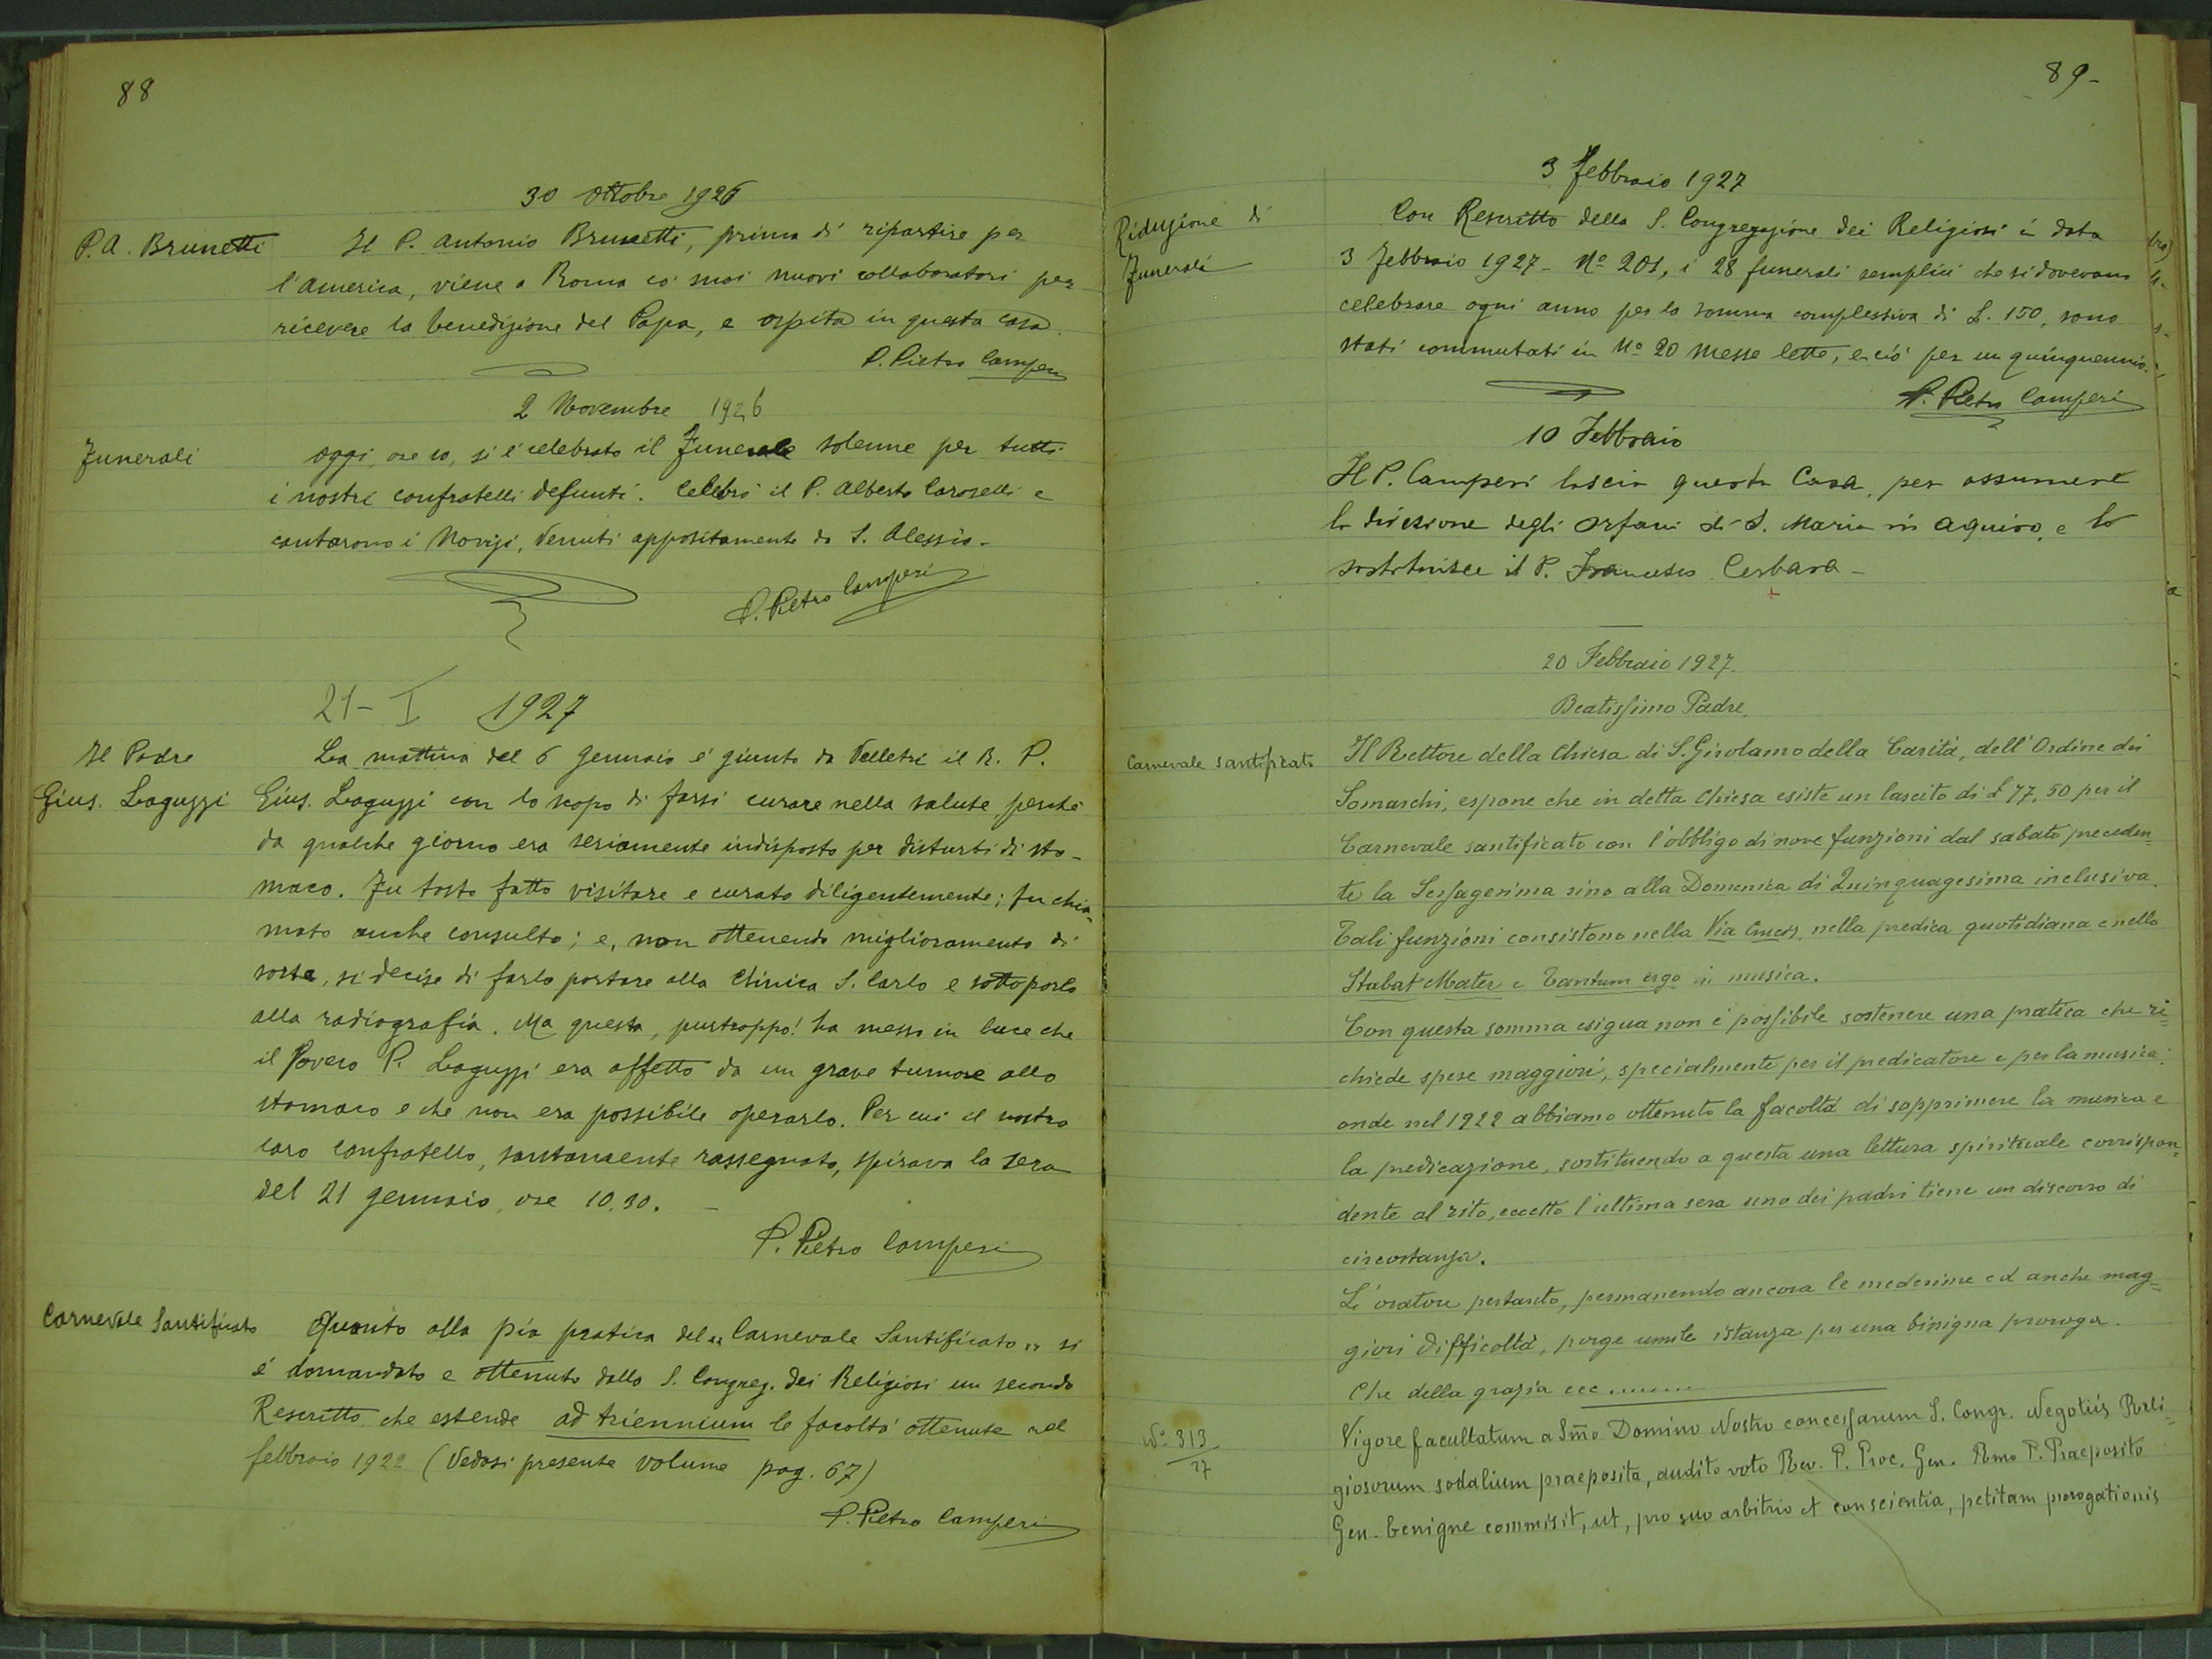 88
30 Ottobre 1926
P. A. Brunetti
Il P. Antonio Brunetti, prima di ripartire per
l'America, viene a Roma co' suoi nuovi collaboratori per
ricevere la benedizione del Papa, e ospita in questa casa.
P. Pietro Camperi
2 Novembre 1926
Funerali
Oggi, ore 10, si è celebrato il Funerale solenne per tutti
i nostri confratelli defunti. Celebrò il P. Alberto Caroselli e
cantarono i Novizi, venuti appositamente da S. Alessio.
P. Pietro Camperi
21 - I 1927
Il Padre
Gius. Laguzzi
La mattina del 6 Gennaio è giunto da Velletri il R. P.
Gius. Laguzzi con lo scopo di farsi curare nella salute, perchè
da qualche giorno era seriamente indisposto per disturbi di sto-
maco. Fu tosto fatto visitare e curato diligentemente; fu chia-
mato anche consulto; e, non ottenendo miglioramento di
sorta, si decise di farlo portare alla Clinica S. Carlo e sottoporlo
alla radiografia. Ma questa, purtroppo! ha messo in luce che
il Povero P. Laguzzi era affetto da un grave tumore allo
stomaco e che non era possibile operarlo. Per cui il nostro
caro confratello, santamente rassegnato, spirava la sera
del 21 gennaio, ore 10.30. -
P. Pietro Camperi
Carnevale Santificato
Quanto alla pia pratica del "Carnevale Santificato" si
è domandato e ottenuto dalla S. Congreg. dei Religiosi un secondo
Rescritto che estende ad triennium le facoltà ottenute nel
febbraio 1922 (Vedasi presente volume pag. 67)
P. Pietro Camperi
89-
3 Febbraio 1927
Riduzione di
Funerali
Con Rescritto della S. Congregazione dei Religiosi in data
3 Febbraio 1927 - Nº 201, i 28 funerali semplici che si dovevano
celebrare ogni anno per la somma complessiva di L. 150, sono
stati commutati in Nº 20 Messe lette, e ciò per un quinquennio.
P. Pietro Camperi
10 Febbraio
Il P. Camperi lascia questa Casa, per assumere
la direzione degli Orfani di S. Maria in Aquiro, e lo
sostituisce il P. Francesco Cerbara -
20 Febbraio 1927.
Beatissimo Padre,
Carnevale santificato
Il Rettore della Chiesa di S. Girolamo della Carità, dell'Ordine dei
Somaschi, espone che in detta Chiesa esiste un lascito di £ 77,50 per il
Carnevale santificato con l'obbligo di nove funzioni dal sabato preceden=
te la Sessagesima sino alla Domenica di Quinquagesima inclusiva.
Tali funzioni consistono nella Via Crucis, nella predica quotidiana e nello
Stabat Mater e Tantum ergo in musica.
Con questa somma esigua non è possibile sostenere una pratica che ri=
chiede spese maggiori, specialmente per il predicatore e per la musica:
onde nel 1922 abbiamo ottenuto la facoltà di sopprimere la musica e
la predicazione, sostituendo a questa una lettura spirituale corrispon=
dente al rito, eccetto l'ultima sera uno dei padri tiene un discorso di
circostanza.
L'oratore pertanto, permanendo ancora le medesime ed anche mag=
giori difficoltà, porge umile istanza per una benigna proroga.
Che della grazia ecc ........
Nº 313/27
Vigore facultatum a Smo Domino Nostro concessarum S. Congr. Negotiis Reli=
giosorum sodalium praeposita, audito voto Rev. P. Proc. Gen. Rmo P. Praeposito
Gen. benigne commisit, ut, pro suo arbitrio et conscientia, petitam prorogationis